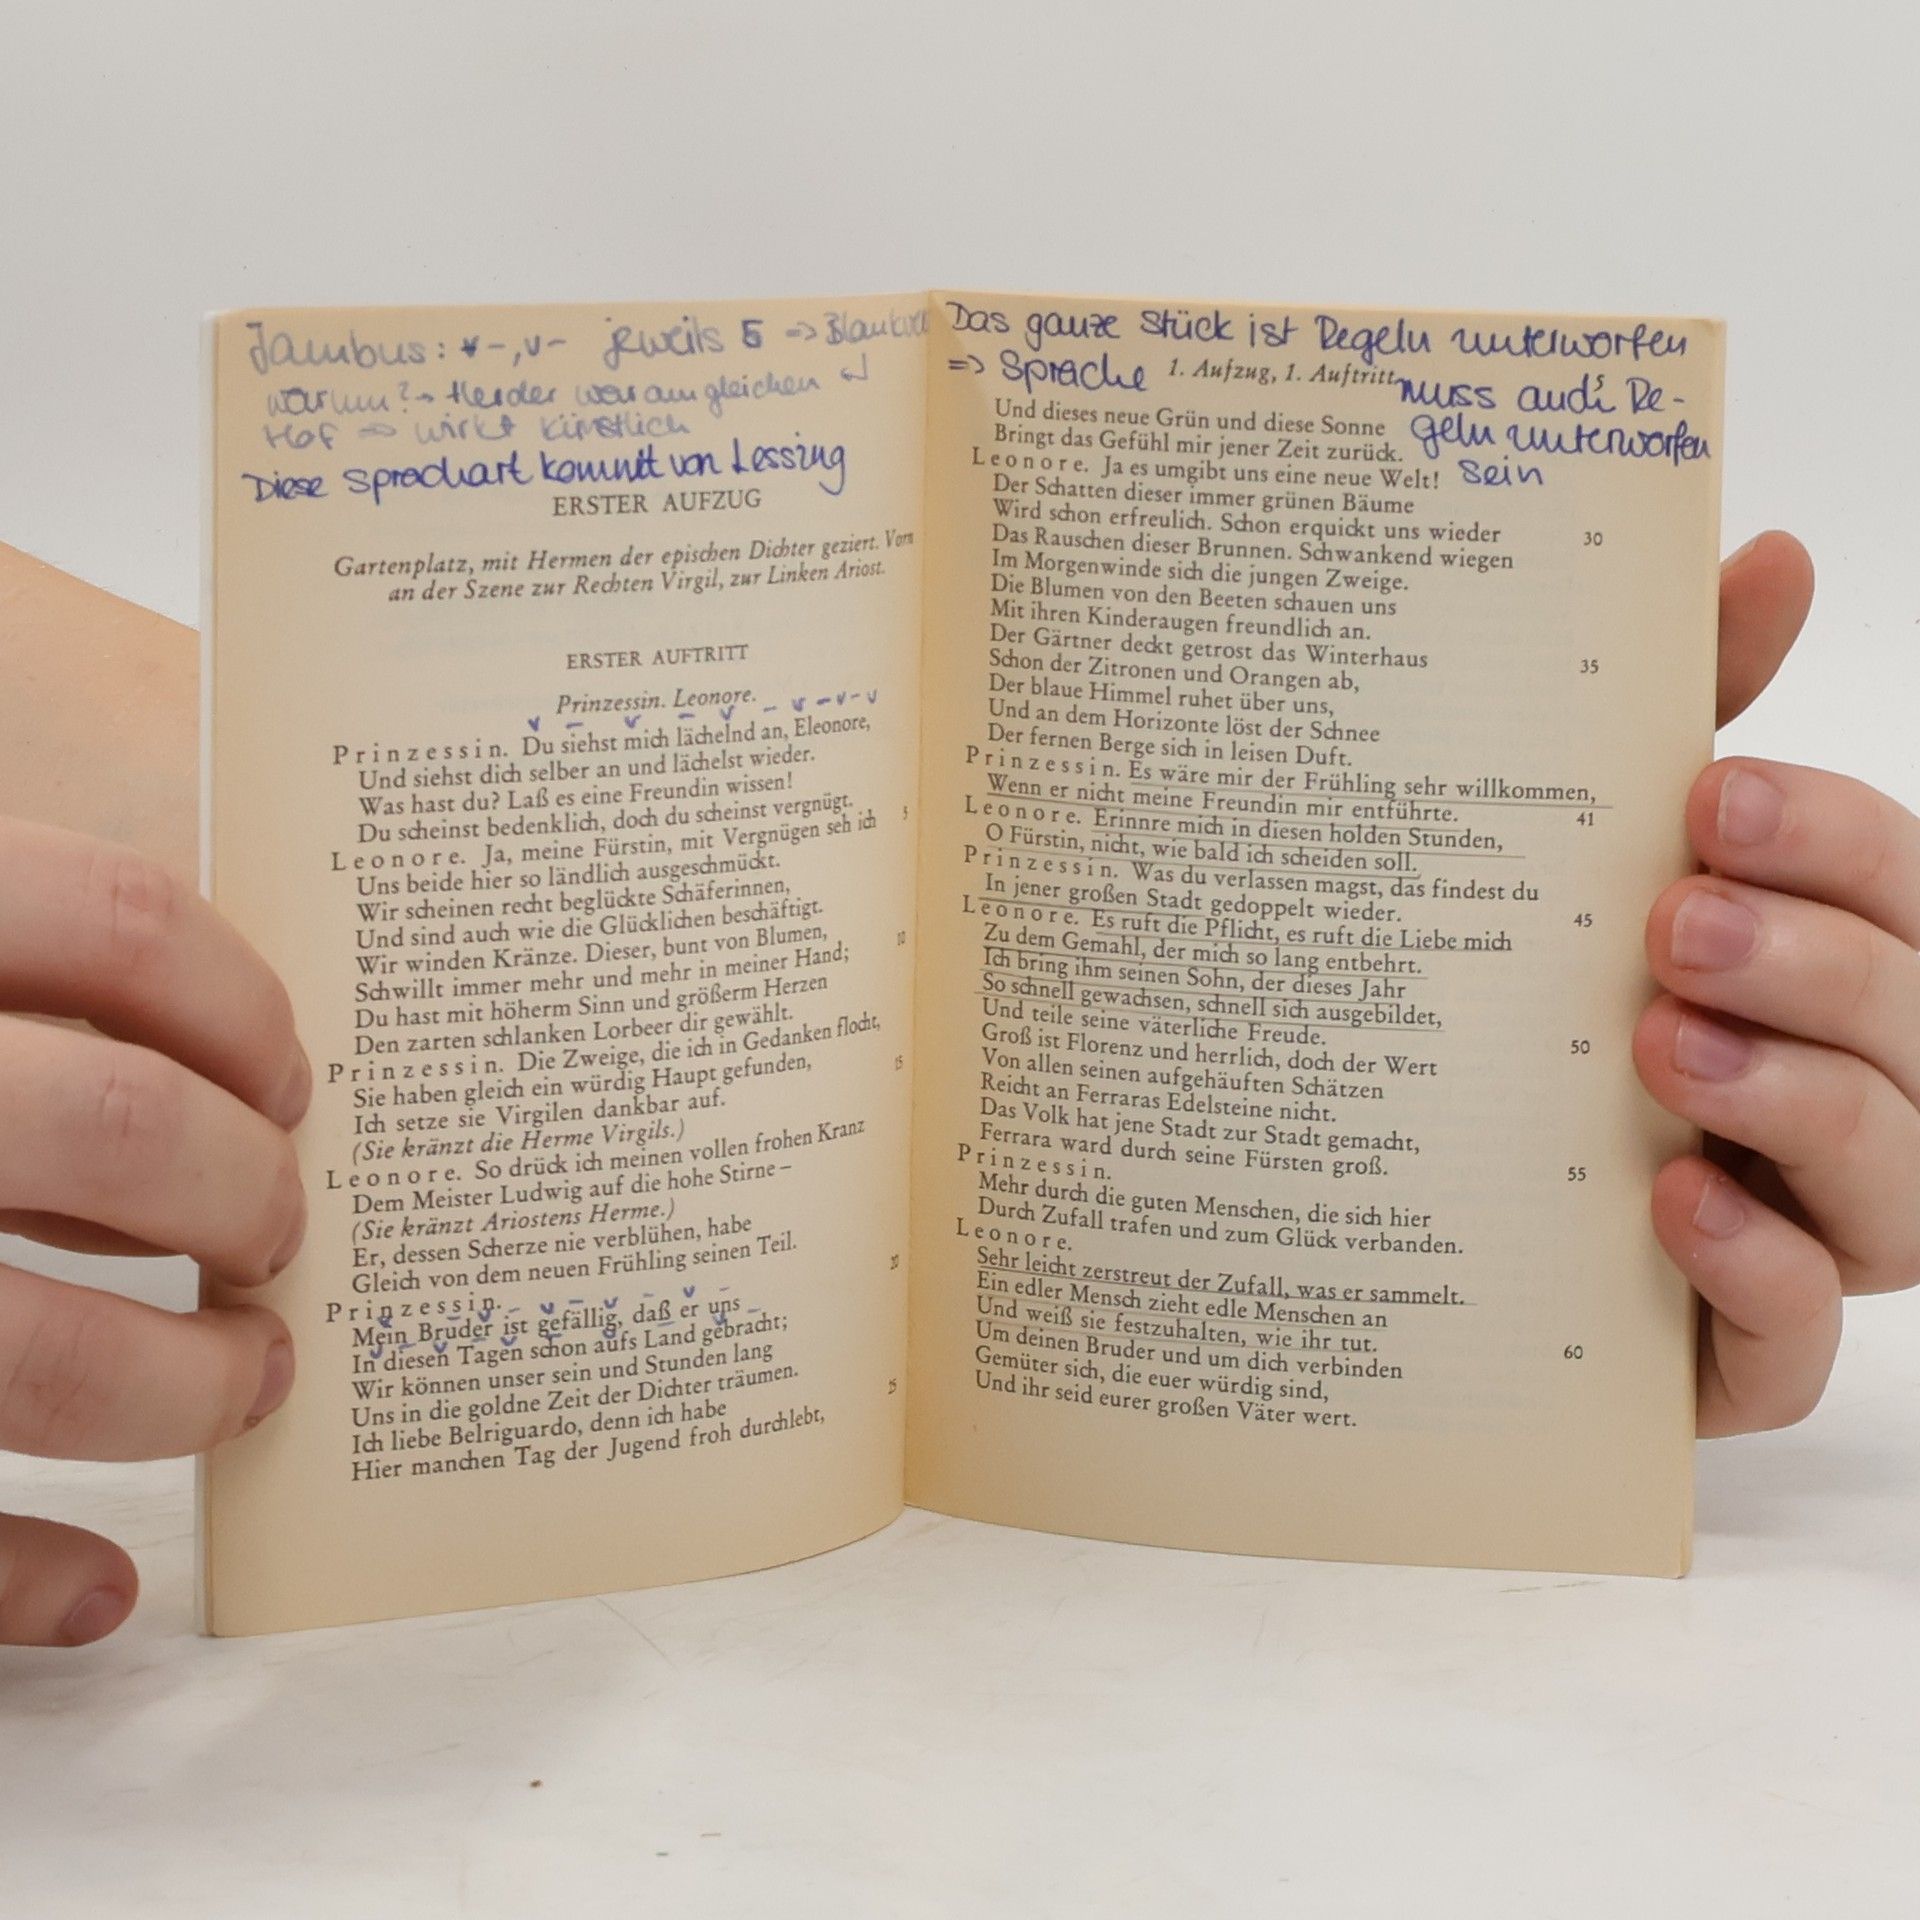 Jambus: v–, v– jeweils 5 => Blankvers
warum? → Herder war am gleichen
Hof => wirkt künstlich
Diese Sprachart kommt von Lessing
ERSTER AUFZUG
Gartenplatz, mit Hermen der epischen Dichter geziert. Vorn
an der Szene zur Rechten Virgil, zur Linken Ariost.
ERSTER AUFTRITT
Prinzessin. Leonore.
Prinzessin. Du siehst mich lächelnd an, Eleonore,
Und siehst dich selber an und lächelst wieder.
Was hast du? Laß es eine Freundin wissen!
Du scheinst bedenklich, doch du scheinst vergnügt.
Leonore. Ja, meine Fürstin, mit Vergnügen seh ich 5
Uns beide hier so ländlich ausgeschmückt.
Wir scheinen recht beglückte Schäferinnen,
Und sind auch wie die Glücklichen beschäftigt.
Wir winden Kränze. Dieser, bunt von Blumen,
Schwillt immer mehr und mehr in meiner Hand; 10
Du hast mit höherm Sinn und größerm Herzen
Den zarten schlanken Lorbeer dir gewählt.
Prinzessin. Die Zweige, die ich in Gedanken flocht,
Sie haben gleich ein würdig Haupt gefunden,
Ich setze sie Virgilen dankbar auf. 15
(Sie kränzt die Herme Virgils.)
Leonore. So drück ich meinen vollen frohen Kranz
Dem Meister Ludwig auf die hohe Stirne –
(Sie kränzt Ariostens Herme.)
Er, dessen Scherze nie verblühen, habe
Gleich von dem neuen Frühling seinen Teil.
Prinzessin. 20
Mein Bruder ist gefällig, daß er uns
In diesen Tagen schon aufs Land gebracht;
Wir können unser sein und Stunden lang
Uns in die goldne Zeit der Dichter träumen.
Ich liebe Belriguardo, denn ich habe
Hier manchen Tag der Jugend froh durchlebt, 25
Das ganze Stück ist Regeln unterworfen
=> Sprache muss auch Re-
geln unterworfen
sein
1. Aufzug, 1. Auftritt
Und dieses neue Grün und diese Sonne
Bringt das Gefühl mir jener Zeit zurück.
Leonore. Ja es umgibt uns eine neue Welt!
Der Schatten dieser immer grünen Bäume
Wird schon erfreulich. Schon erquickt uns wieder 30
Das Rauschen dieser Brunnen. Schwankend wiegen
Im Morgenwinde sich die jungen Zweige.
Die Blumen von den Beeten schauen uns
Mit ihren Kinderaugen freundlich an.
Der Gärtner deckt getrost das Winterhaus 35
Schon der Zitronen und Orangen ab,
Der blaue Himmel ruhet über uns,
Und an dem Horizonte löst der Schnee
Der fernen Berge sich in leisen Duft.
Prinzessin. Es wäre mir der Frühling sehr willkommen,
Wenn er nicht meine Freundin mir entführte. 41
Leonore. Erinnre mich in diesen holden Stunden,
O Fürstin, nicht, wie bald ich scheiden soll.
Prinzessin. Was du verlassen magst, das findest du
In jener großen Stadt gedoppelt wieder. 45
Leonore. Es ruft die Pflicht, es ruft die Liebe mich
Zu dem Gemahl, der mich so lang entbehrt.
Ich bring ihm seinen Sohn, der dieses Jahr
So schnell gewachsen, schnell sich ausgebildet,
Und teile seine väterliche Freude. 50
Groß ist Florenz und herrlich, doch der Wert
Von allen seinen aufgehäuften Schätzen
Reicht an Ferraras Edelsteine nicht.
Das Volk hat jene Stadt zur Stadt gemacht,
Ferrara ward durch seine Fürsten groß. 55
Prinzessin.
Mehr durch die guten Menschen, die sich hier
Durch Zufall trafen und zum Glück verbanden.
Leonore.
Sehr leicht zerstreut der Zufall, was er sammelt.
Ein edler Mensch zieht edle Menschen an
Und weiß sie festzuhalten, wie ihr tut. 60
Um deinen Bruder und um dich verbinden
Gemüter sich, die euer würdig sind,
Und ihr seid eurer großen Väter wert.